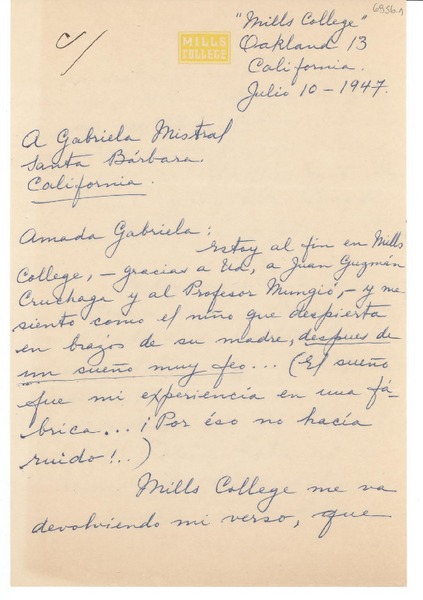 6956n
MILLS
COLLEGE
"Mills College"
Oakland 13
California.
Julio 10 - 1947.
A Gabriela Mistral
Santa Bárbara.
California.
Amada Gabriela:
Estoy al fin en Mills
College, - gracias a Ud, a Juan Guzmán
Cruchaga y al Profesor Mungió, - y me
siento como el niño que despierta
en brazos de su madre, despues de
un sueño muy feo... (El sueño
fue mi experiencia en una fá-
brica... ¡Por éso no hacía
ruido!..)
Mills College me va
devolviendo mi verso, que